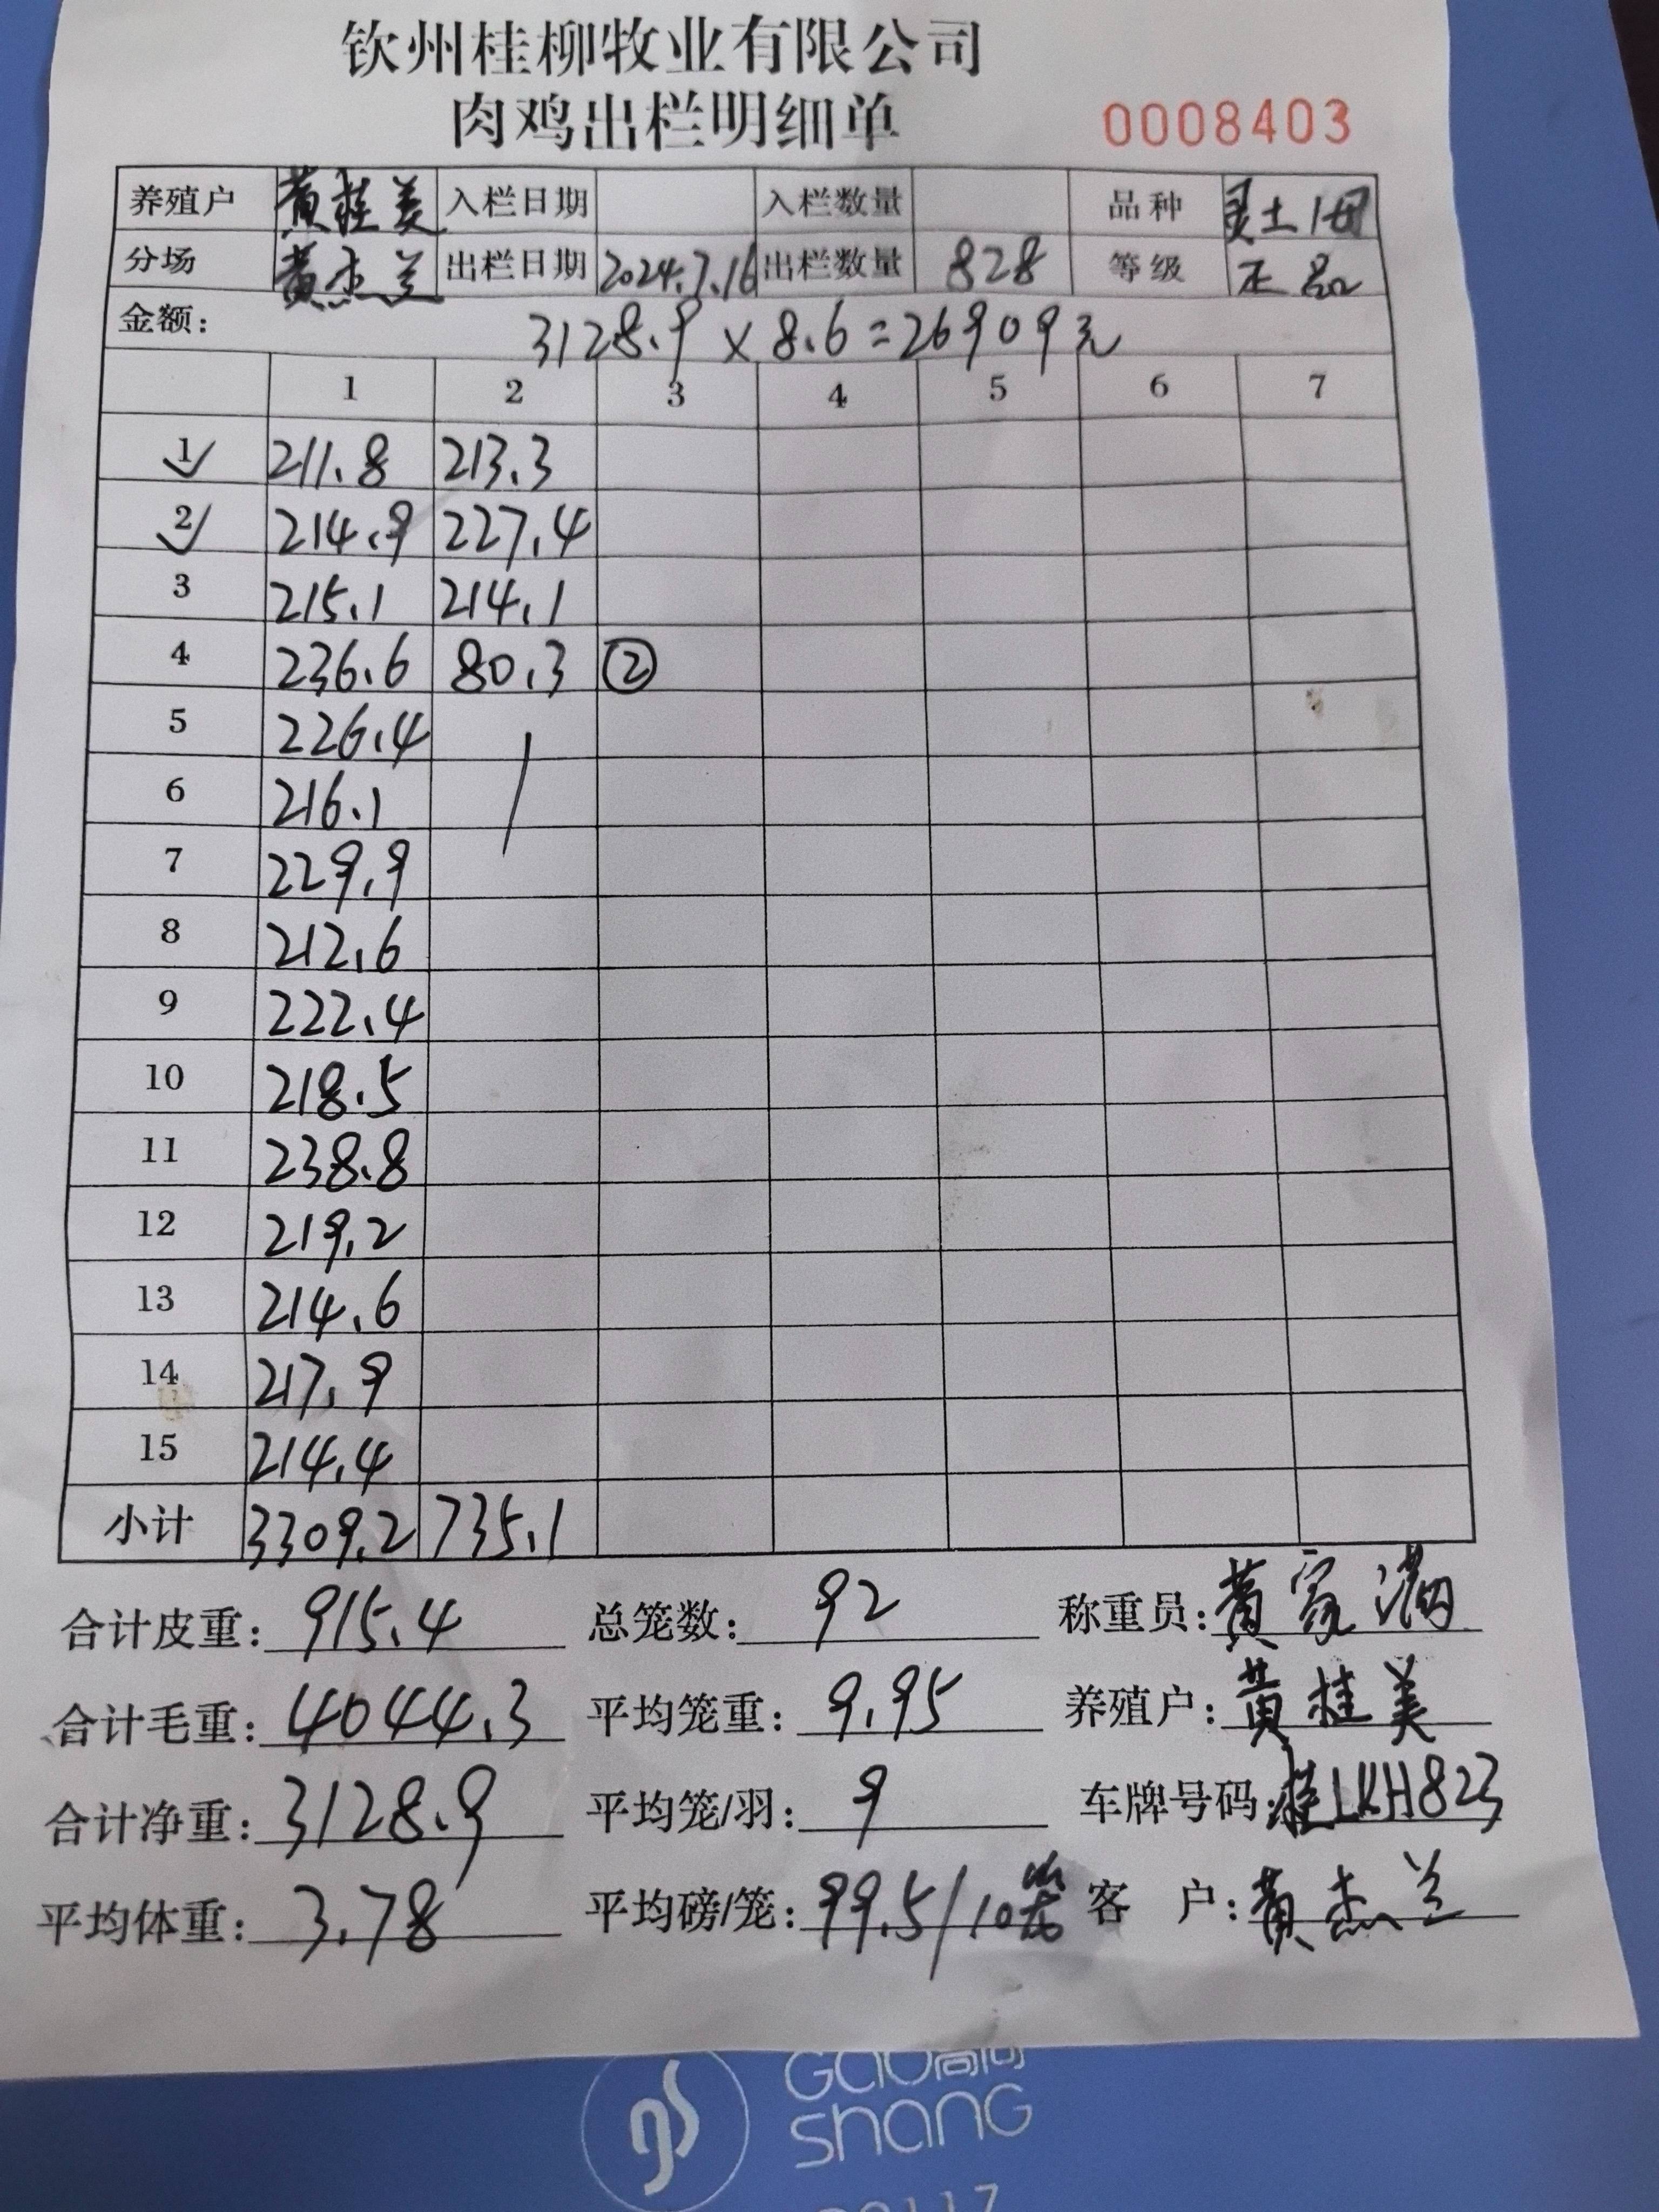 钦州桂柳牧业有限公司
肉鸡出栏明细单 0008403
养殖户 黄桂美 入栏日期 入栏数量 品种 灵土
分场 黄杰兰 出栏日期 2024.7.16 出栏数量 828 等级 正品
金额: 3128.9 × 8.6 = 26909元
1 2 3 4 5 6 7
1 211.8 213.3
2 214.9 227.4
3 215.1 214.1
4 236.6 80.3 ②
5 226.4
6 216.1
7 229.9
8 212.6
9 222.4
10 218.5
11 238.8
12 219.2
13 214.6
14 217.9
15 214.4
小计 3309.2 735.1
合计皮重: 915.4 总笼数: 92 称重员: 黄家满
合计毛重: 4044.3 平均笼重: 9.95 养殖户: 黄桂美
合计净重: 3128.9 平均笼/羽: 9 车牌号码: 桂LKH823
平均体重: 3.78 平均磅/笼: 99.5/10笼 客 户: 黄杰兰
GAO高尚
Shang